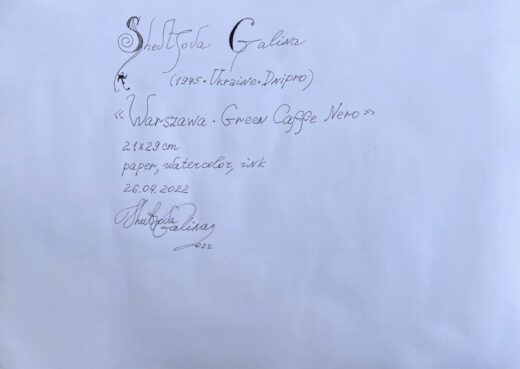 Shevtsova Galina
(1975 • Ukraine • Dnipro)
« Warszawa • Green Caffe Nero »
21x29cm
paper, watercolor, ink
26.04.2022
Shevtsova Galina
2022